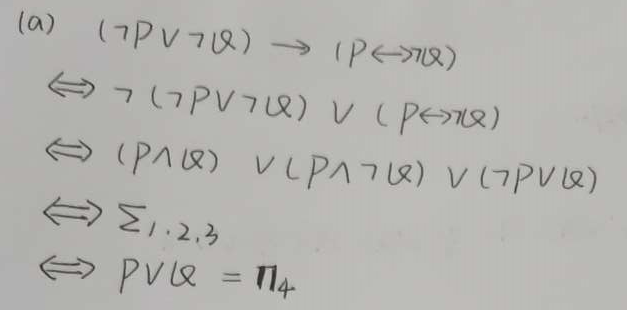 (a) (¬P∨¬Q) → (P↔¬Q)
⇔ ¬(¬P∨¬Q) ∨ (P↔¬Q)
⇔ (P∧Q) ∨(P∧¬Q) ∨(¬P∨Q)
⇔ Σ1.2.3
⇔ P∨Q = Π4